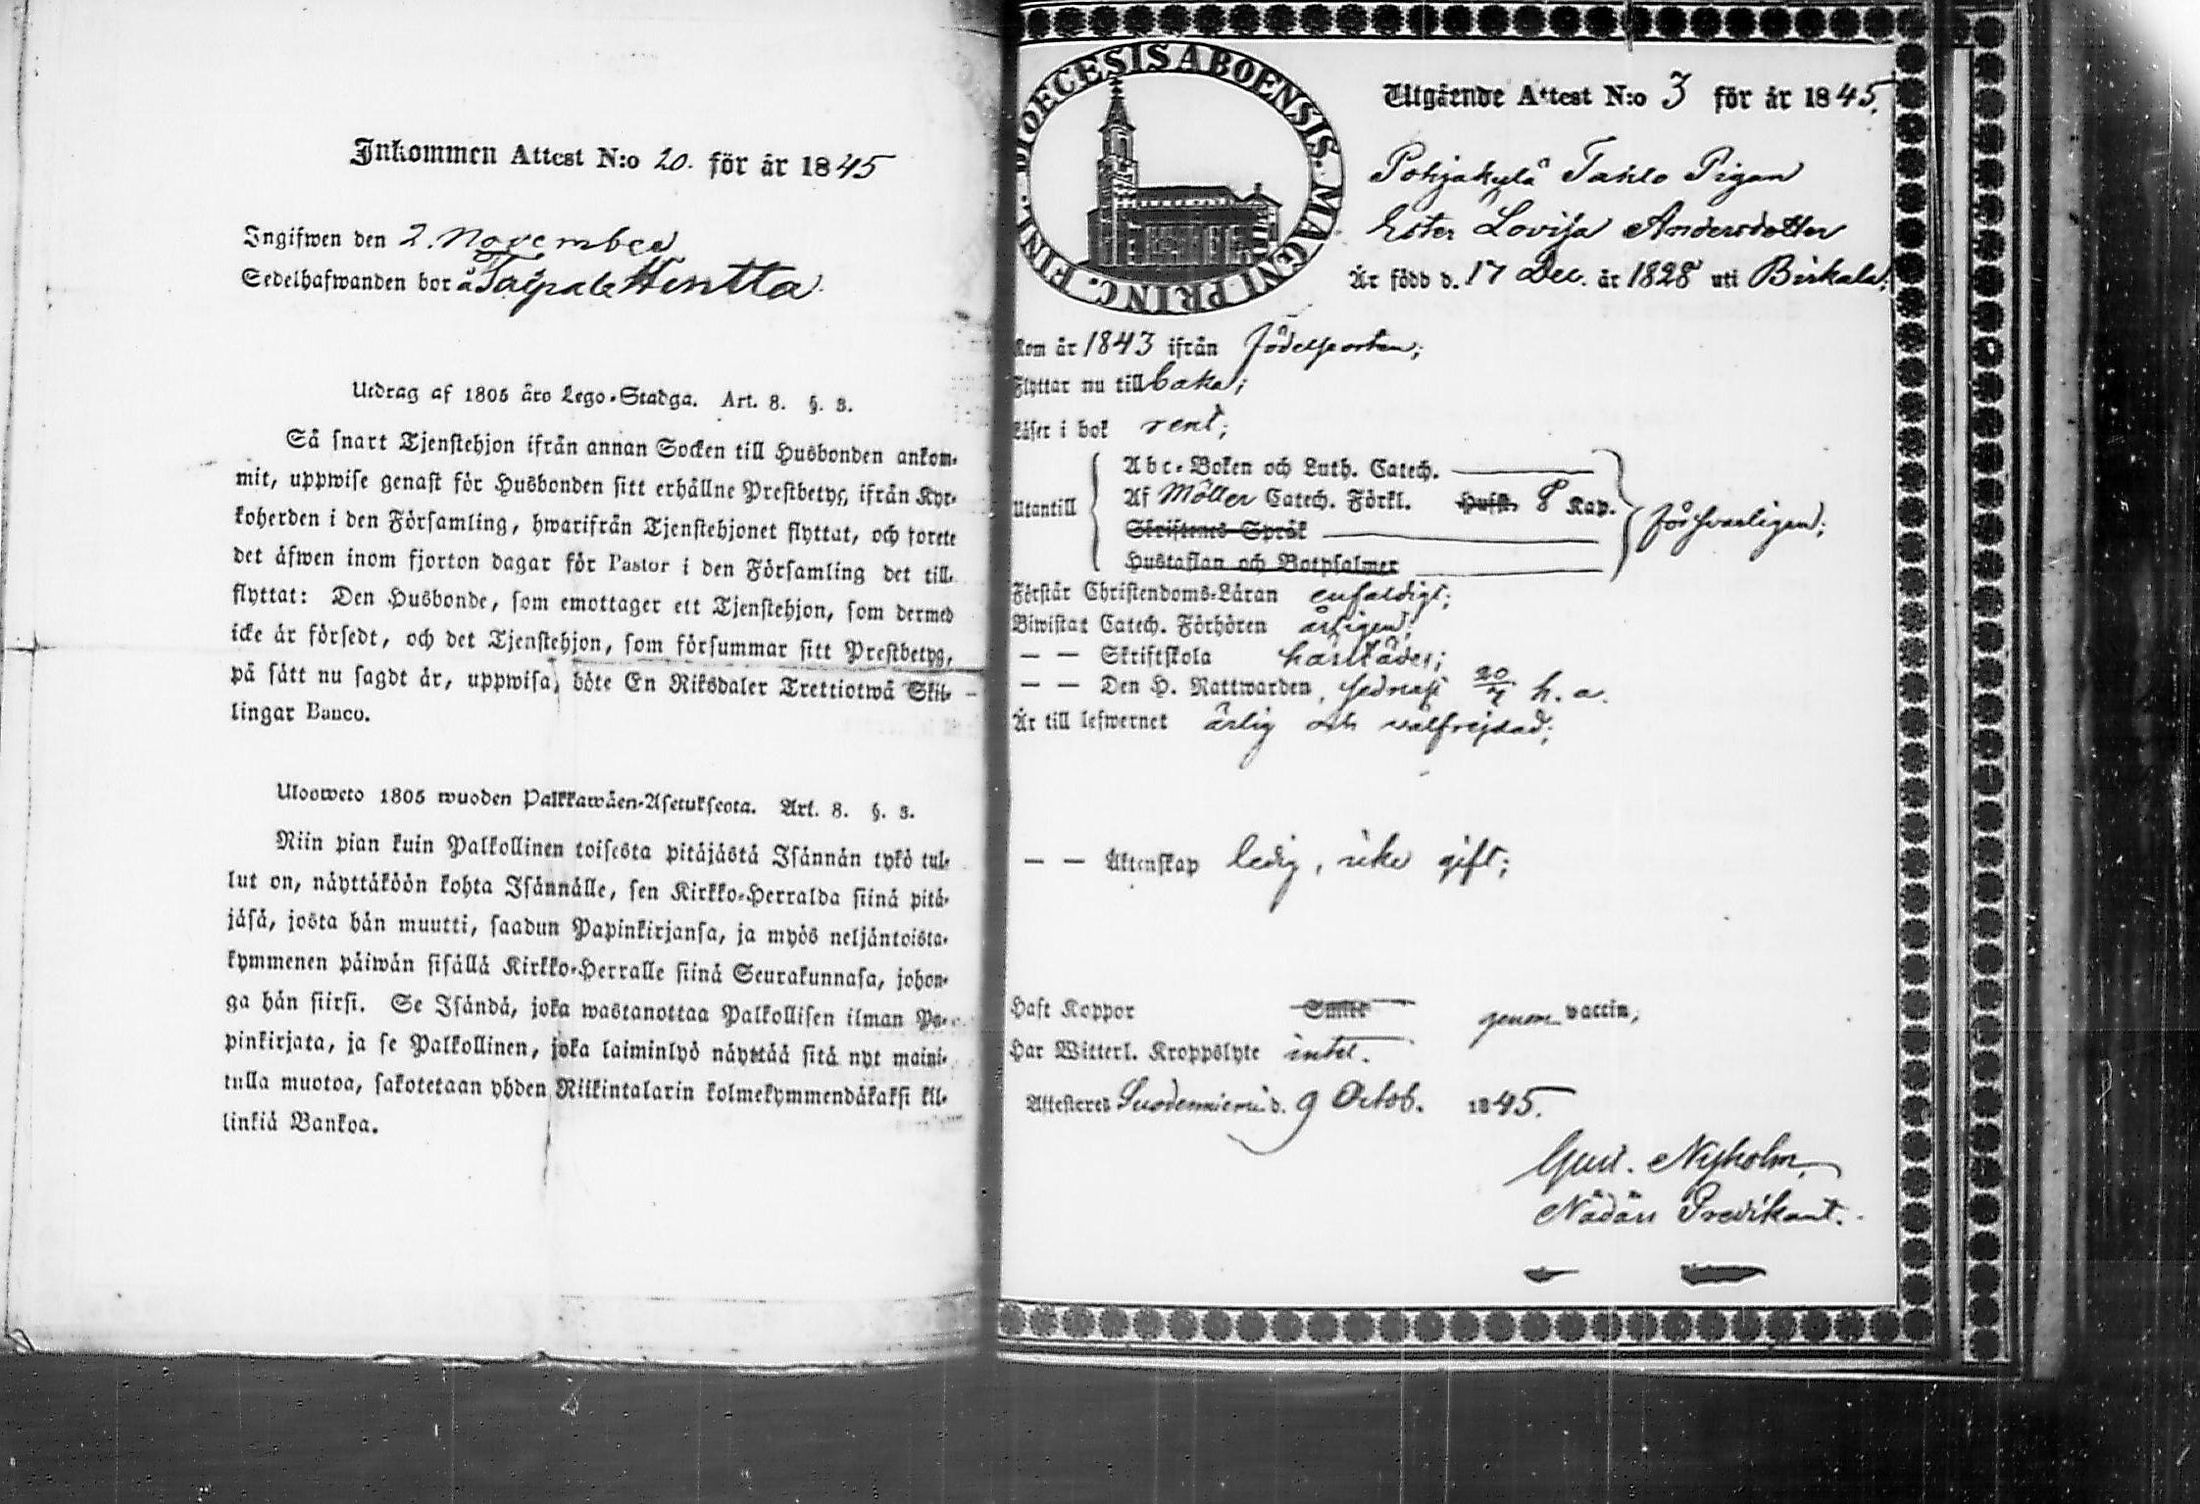 Inkommen Attest N:o 20. för år 1845
Ingifwen den 2. November
Sedelhafwanden bor å Taipale Hentta.
Utdrag af 1805 års Lego-Stadga. Art. 8. §. 3.
Så snart Tjenstehjon ifrån annan Socken till Husbonden ankom-
mit, uppwise genast för Husbonden sitt erhållne Prestbetyg, ifrån Kyr-
koherden i den Församling, hwarifrån Tjenstehjonet flyttat, och torete
det äfwen inom fjorton dagar för Pastor i den Församling det till-
flyttat: Den Husbonde, som emottager ett Tjenstehjon, som dermed
icke är försedt, och det Tjenstehjon, som försummar sitt Prestbetyg,
på sätt nu sagdt är, uppwisa, böte En Riksdaler Trettiotwå Skil-
lingar Banco.
Ulosweto 1805 wuoden Palkkawäen-Asetuksesta. Art. 8. §. 3.
Niin pian kuin Palkollinen toisesta pitäjästä Isännän tykö tul-
lut on, näyttäköön kohta Isännälle, sen Kirkko-Herralda siinä pitä-
jäsä, josta hän muutti, saadun Papinkirjansa, ja myös neljäntoista-
kymmenen päiwän sisällä Kirkko-Herralle siinä Seurakunnasa, johon-
ga hän siirsi. Se Isändä, joka wastanottaa Palkollisen ilman Pa-
pinkirjata, ja se Palkollinen, joka laiminlyö näyttää sitä nyt maini-
tulla muotoa, sakotetaan yhden Riikintalarin kolmekymmendäkaksi kil-
linkiä Bankoa.
DIOECESIS ABOENSIS. MAGNI PRINC. FINL.
Utgående Attest N:o 3 för år 1845.
Pohjakylä Tahlo Pigan
Ester Lovisa Andersdotter
Är född d. 17 Dec. år 1828 uti Birkala;
Kom år 1843 ifrån födelseorten;
Flyttar nu tillbaka;
Läser i bok rent;
Utantill
Abc-Boken och Luth. Catech.
Af Möller Catech. Förkl. Hufst. 8 Kap.
Skriftenes Språk
Hustaflan och Botpsalmer
försvarligen;
Förstår Christendoms-Läran enfaldigt;
Biwistat Catech. Förhören årligen;
— — Skriftskola härstädes;
— — Den H. Nattwarden, sednast 20/7 h. a.
Är till lefwernet ärlig och välfrejdad;
— — Äktenskap ledig, icke gift;
Haft Koppor genom vaccin;
Har Witterl. Kroppslyte intet.
Attesteres Suodenniemi d. 9 Octob. 1845.
Gust. Nyholm.
Nådårs Predikant.